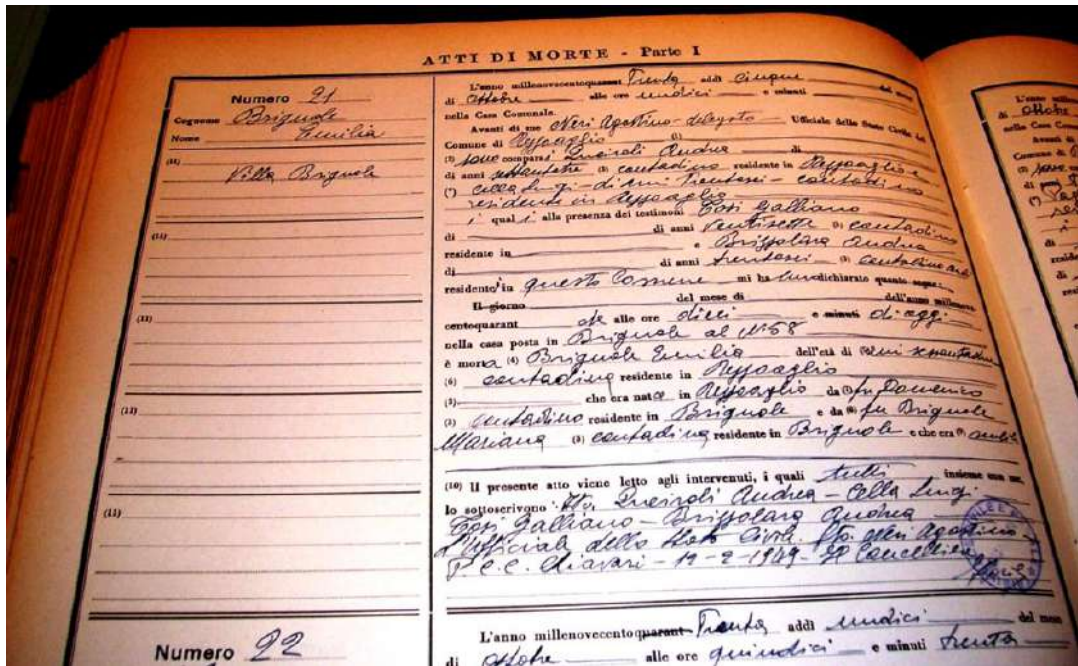 ATTI DI MORTE - Parte I
Numero 21
Cognome Brignole
Nome Emilia
(11)
Villa Brignole
(11)
(11)
(11)
(11)
Numero 22
L'anno millenovecentoquarant Trenta addì Cinque
di Ottobre alle ore undici e minuti
nella Casa Comunale.
Avanti di me Neri Agostino - delegato Ufficiale dello Stato Civile del
Comune di Rezzoaglio (1)
(2) sono comparsi Queiroli Andrea di
di anni settantatre (3) contadino residente in Rezzoaglio e
(*) Cella Luigi - di anni Trentasei - contadino
residente in Rezzoaglio
i quali alla presenza dei testimoni Tosi Galliano
di di anni Ventisette (3) contadino
residente in e Brizzolara Andrea
di di anni trentasei (3) contadino
residente in questo Comune mi ha dichiarato quanto segue:
Il giorno del mese di dell'anno millenove-
centoquarant alle ore dieci e minuti di oggi
nella casa posta in Brignole al N° 58
è morta (4) Brignole Emilia dell'età di
(6) contadina residente in Rezzoaglio
che era nata in Rezzoaglio da fu Domenico
(3) contadino residente in Brignole e da fu Brignole
Mariana (3) contadina residente in Brignole e che era
(10) Il presente atto viene letto agli intervenuti, i quali tutti insieme con me,
lo sottoscrivono Queiroli Andrea - Cella Luigi -
Tosi Galliano - Brizzolara Andrea
L'Ufficiale dello Stato Civile. Neri Agostino -
P.C.C. Chiavari - 2 - 1949 - Il Cancelliere
L'anno millenovecentoquarant Trenta addì undici del mese
di Ottobre alle ore quindici e minuti trenta